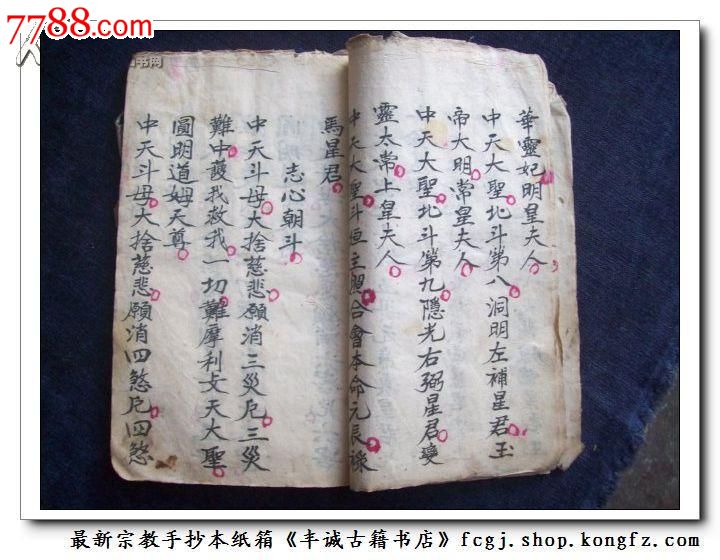 7788.com
书网
華靈妃明皇夫人
中天大聖北斗第八洞明左補星君玉
帝大明常皇夫人
中天大聖北斗第九隱光右弼星君變
靈太常上皇夫人
中天大聖斗恒主照合會本命元辰祿
馬星君
志心朝斗
中天斗母大捨慈悲願消三災厄三災
難中護我救我一切難摩利攴天大聖
圓明道姆天尊
中天斗母大捨慈悲願消四煞厄四煞
最新宗教手抄本纸箱《丰诚古籍书店》fcgj.shop.kongfz.com